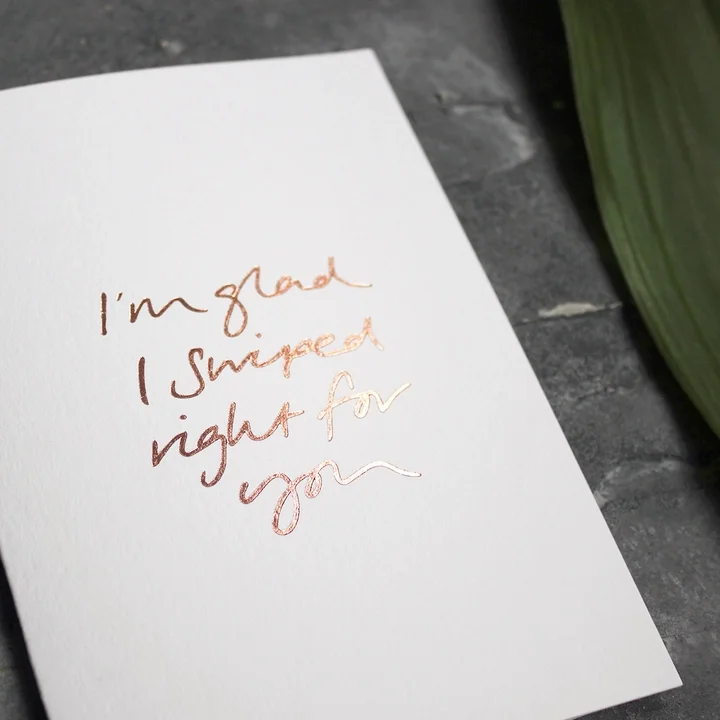 I'm glad
I Swiped
right for
you